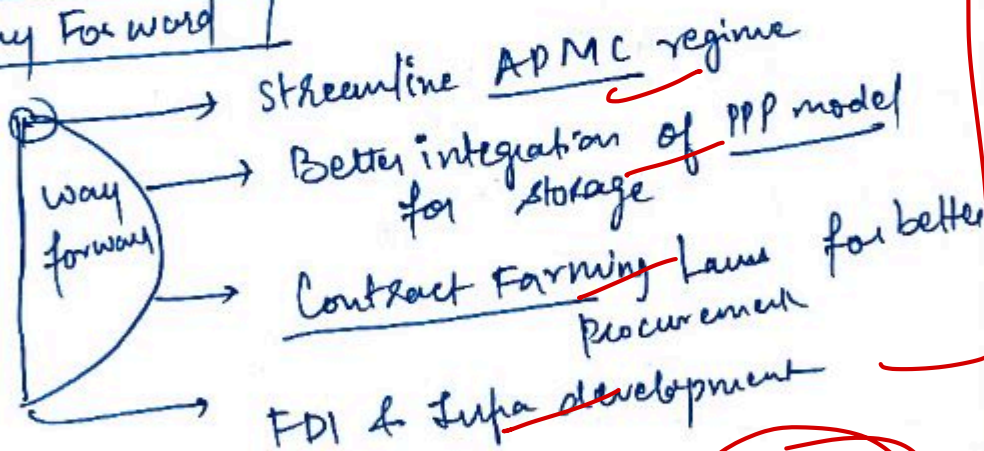 ay Forward
way
forward
Streamline APMC regime
Better integration of PPP model
for storage
Contract Farming Laws for better
procurement
FDI & Infra development